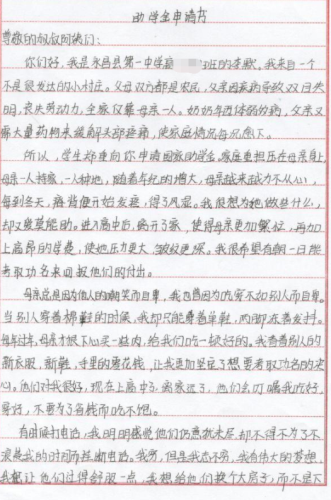 助学金申请书
尊敬的叔叔阿姨们：
你们好，我是永昌县第一中学高 班的李 ，我来自一个
不是很发达的小村庄。父母双方都是农民，父亲因疾病导致双目失
明，丧失劳动力，全家仅靠母亲一人。奶奶年迈体弱多病，父亲又
需大量药物来缓解头部疼痛，使家庭情况每况愈下。
所以，学生郑重向你申请国家助学金。家庭重担压在母亲身上，
母亲一人持家，一人种地，随着年纪的增大，母亲越来越力不从心，
每到冬天，痛 便开始发疼，得了风湿。我很想为她做些什么，
却又爱莫能助。进入高中后，离开了家，使得母亲更加累，再加
上高昂的学费，使她压力更大，皱纹更深。我很希望有朝一日能
考取功名来回报他们的付出。
母亲总是因为他人的嘲笑而自卑，我也曾因为吃穿不如别人而自卑。
当别人穿着棉鞋的时候，我却只能穿着单鞋，两脚冻着发抖。
每年过年，母亲才狠下心买一些肉，给我们吃一顿好的。我看着别人的
新衣服，新鞋，手里的零花钱，让我更加坚定了想要考取功名的决
心。他们对我很好，现在上高中了，离家远了，他们叮嘱我吃好，
穿好，不要为了省钱而吃不饱。
有时候打电话，我明明感觉他们仍意犹未尽，却不得不为了不
浪费我的时间而挂断电话。我穷，但是我志不穷，我有伟大的梦想，
我想让他们过得舒服一点，我想给他们换个大房子，而不是下